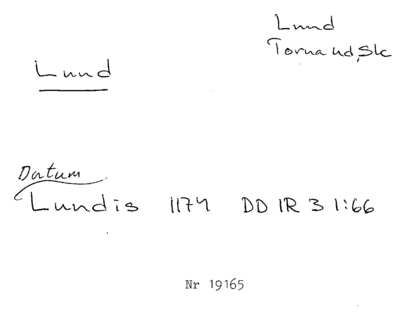 Lund
Torna hd, Sk
Lund
Datum
Lundis 1174 DD IR 3 1:66
Nr 19165